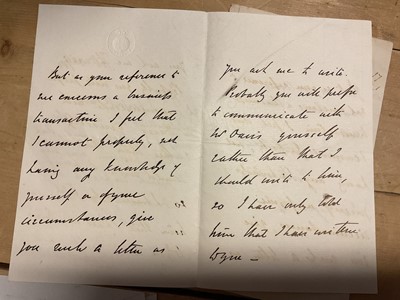 But as your reference to
me concerns a business
transaction I feel that
I cannot properly, not
having any knowledge of
yourself or of your
circumstances, give
you such a letter as
you ask me to write.
Probably you will prefer
to communicate with
Mr Davis yourself
rather than that I
should write to him,
so I have only told
him that I have written
to you —